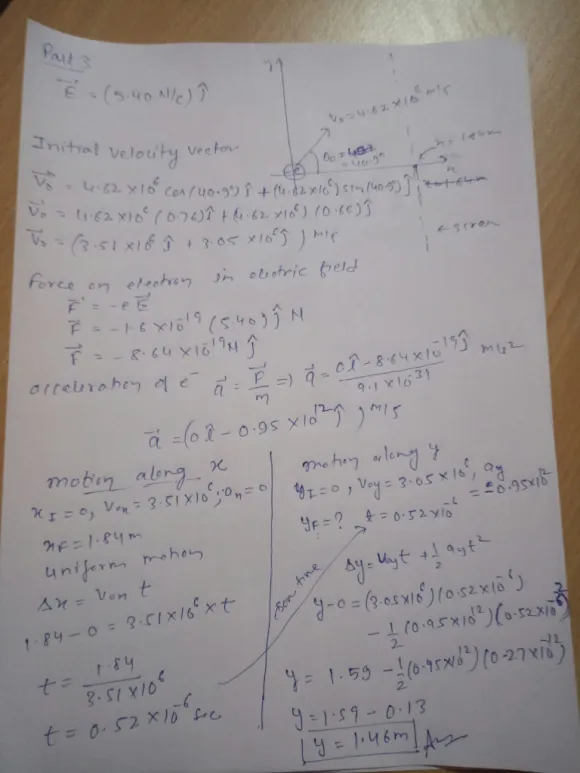 Part 3
E⃗ = (5.40 N/C) ĵ
y
V₀ = 4.62×10⁶ m/s
θ₀ = 
= 40.9°
x = 1.84m
x
← screen
Initial velocity vector
V⃗₀ = 4.62×10⁶ cos(40.9°)î + (4.62×10⁶) sin(40.9°)ĵ
V⃗₀ = 4.62×10⁶ (0.76)î + (4.62×10⁶) (0.66)ĵ
V⃗₀ = (3.51×10⁶ î + 3.05×10⁶ ĵ) m/s
Force on electron in electric field
F⃗ = -eE⃗
F⃗ = -1.6×10⁻¹⁹ (5.40) ĵ N
F⃗ = -8.64×10⁻¹⁹ N ĵ
acceleration of e⁻ a⃗ = F⃗/m ⇒ a⃗ = (0î - 8.64×10⁻¹⁹ ĵ)/(9.1×10⁻³¹) m/s²
a⃗ = (0î - 0.95×10¹² ĵ) m/s
motion along x
x_I = 0, V₀ₓ = 3.51×10⁶, aₓ = 0
x_F = 1.84m
uniform motion
Δx = V₀ₓ t
1.84 - 0 = 3.51×10⁶ × t
t = 1.84/(3.51×10⁶)
t = 0.52×10⁻⁶ sec
motion along y
y_I = 0, V₀y = 3.05×10⁶, ay
= -0.95×10¹²
y_F = ? t = 0.52×10⁻⁶
Δy = V₀yt + ½ ayt²
y - 0 = (3.05×10⁶) (0.52×10⁻⁶)
- ½ (0.95×10¹²) (0.52×10⁻⁶)²
y = 1.59 - ½ (0.95×10¹²) (0.27×10⁻¹²)
y = 1.59 - 0.13
y = 1.46m Ans